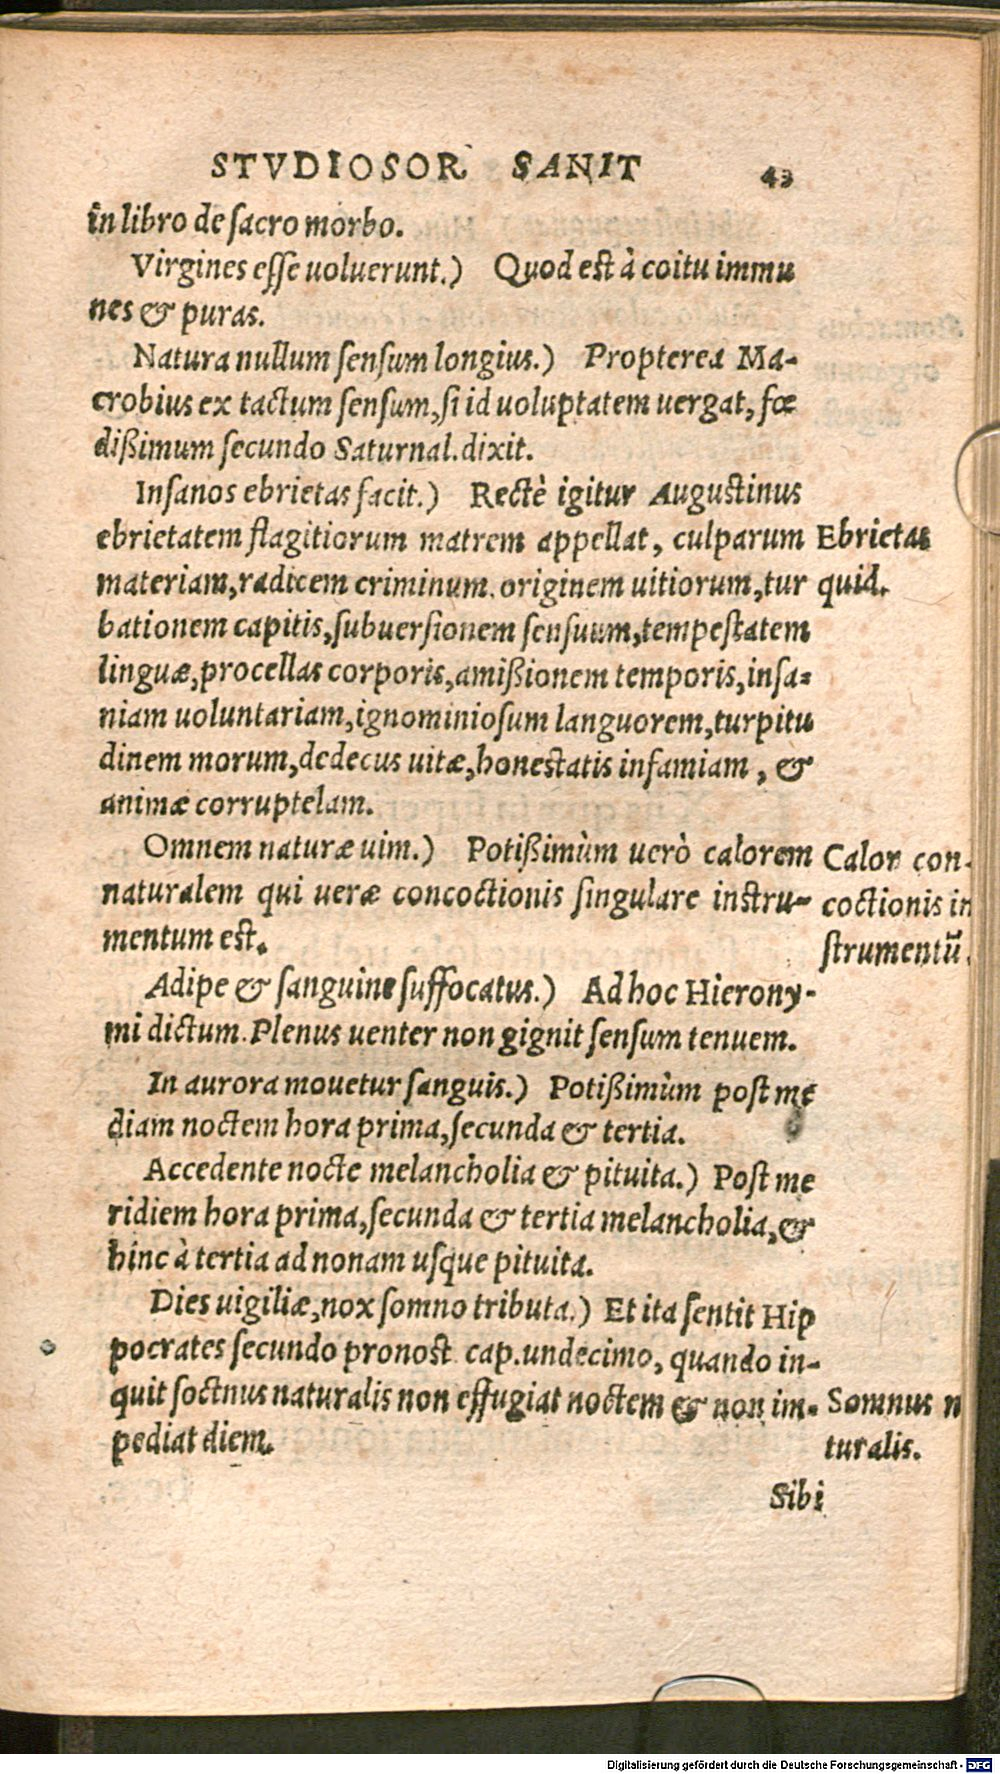 STVDIOSOR SANIT 43
in libro de sacro morbo.
Virgines esse uoluerunt.) Quod est à coitu immu
nes & puras.
Natura nullum sensum longius.) Propterea Ma-
crobius ex tactum sensum, si id uoluptatem uergat, fœ
dißimum secundo Saturnal. dixit.
Insanos ebrietas facit.) Rectè igitur Augustinus
ebrietatem flagitiorum matrem appellat, culparum
materiam, radicem criminum. originem uitiorum, tur
bationem capitis, subuersionem sensuum, tempestatem
linguæ, procellas corporis, amißionem temporis, insa-
niam uoluntariam, ignominiosum languorem, turpitu
dinem morum, dedecus uitæ, honestatis infamiam, &
animæ corruptelam.
Ebrietas
quid.
Omnem naturæ uim.) Potißimùm uerò calorem
naturalem qui ueræ concoctionis singulare instru-
mentum est.
Calor con-
coctionis in
strumentū.
Adipe & sanguine suffocatus.) Ad hoc Hierony-
mi dictum. Plenus uenter non gignit sensum tenuem.
In aurora mouetur sanguis.) Potißimùm post me
diam noctem hora prima, secunda & tertia.
Accedente nocte melancholia & pituita.) Post me
ridiem hora prima, secunda & tertia melancholia, &
hinc à tertia ad nonam usque pituita.
Dies uigiliæ, nox somno tributa.) Et ita sentit Hip
pocrates secundo pronost. cap. undecimo, quando in-
quit soctnus naturalis non effugiat noctem & non im-
pediat diem.
Somnus n
turalis.
Sibi
Digitalisierung gefördert durch die Deutsche Forschungsgemeinschaft - DFG